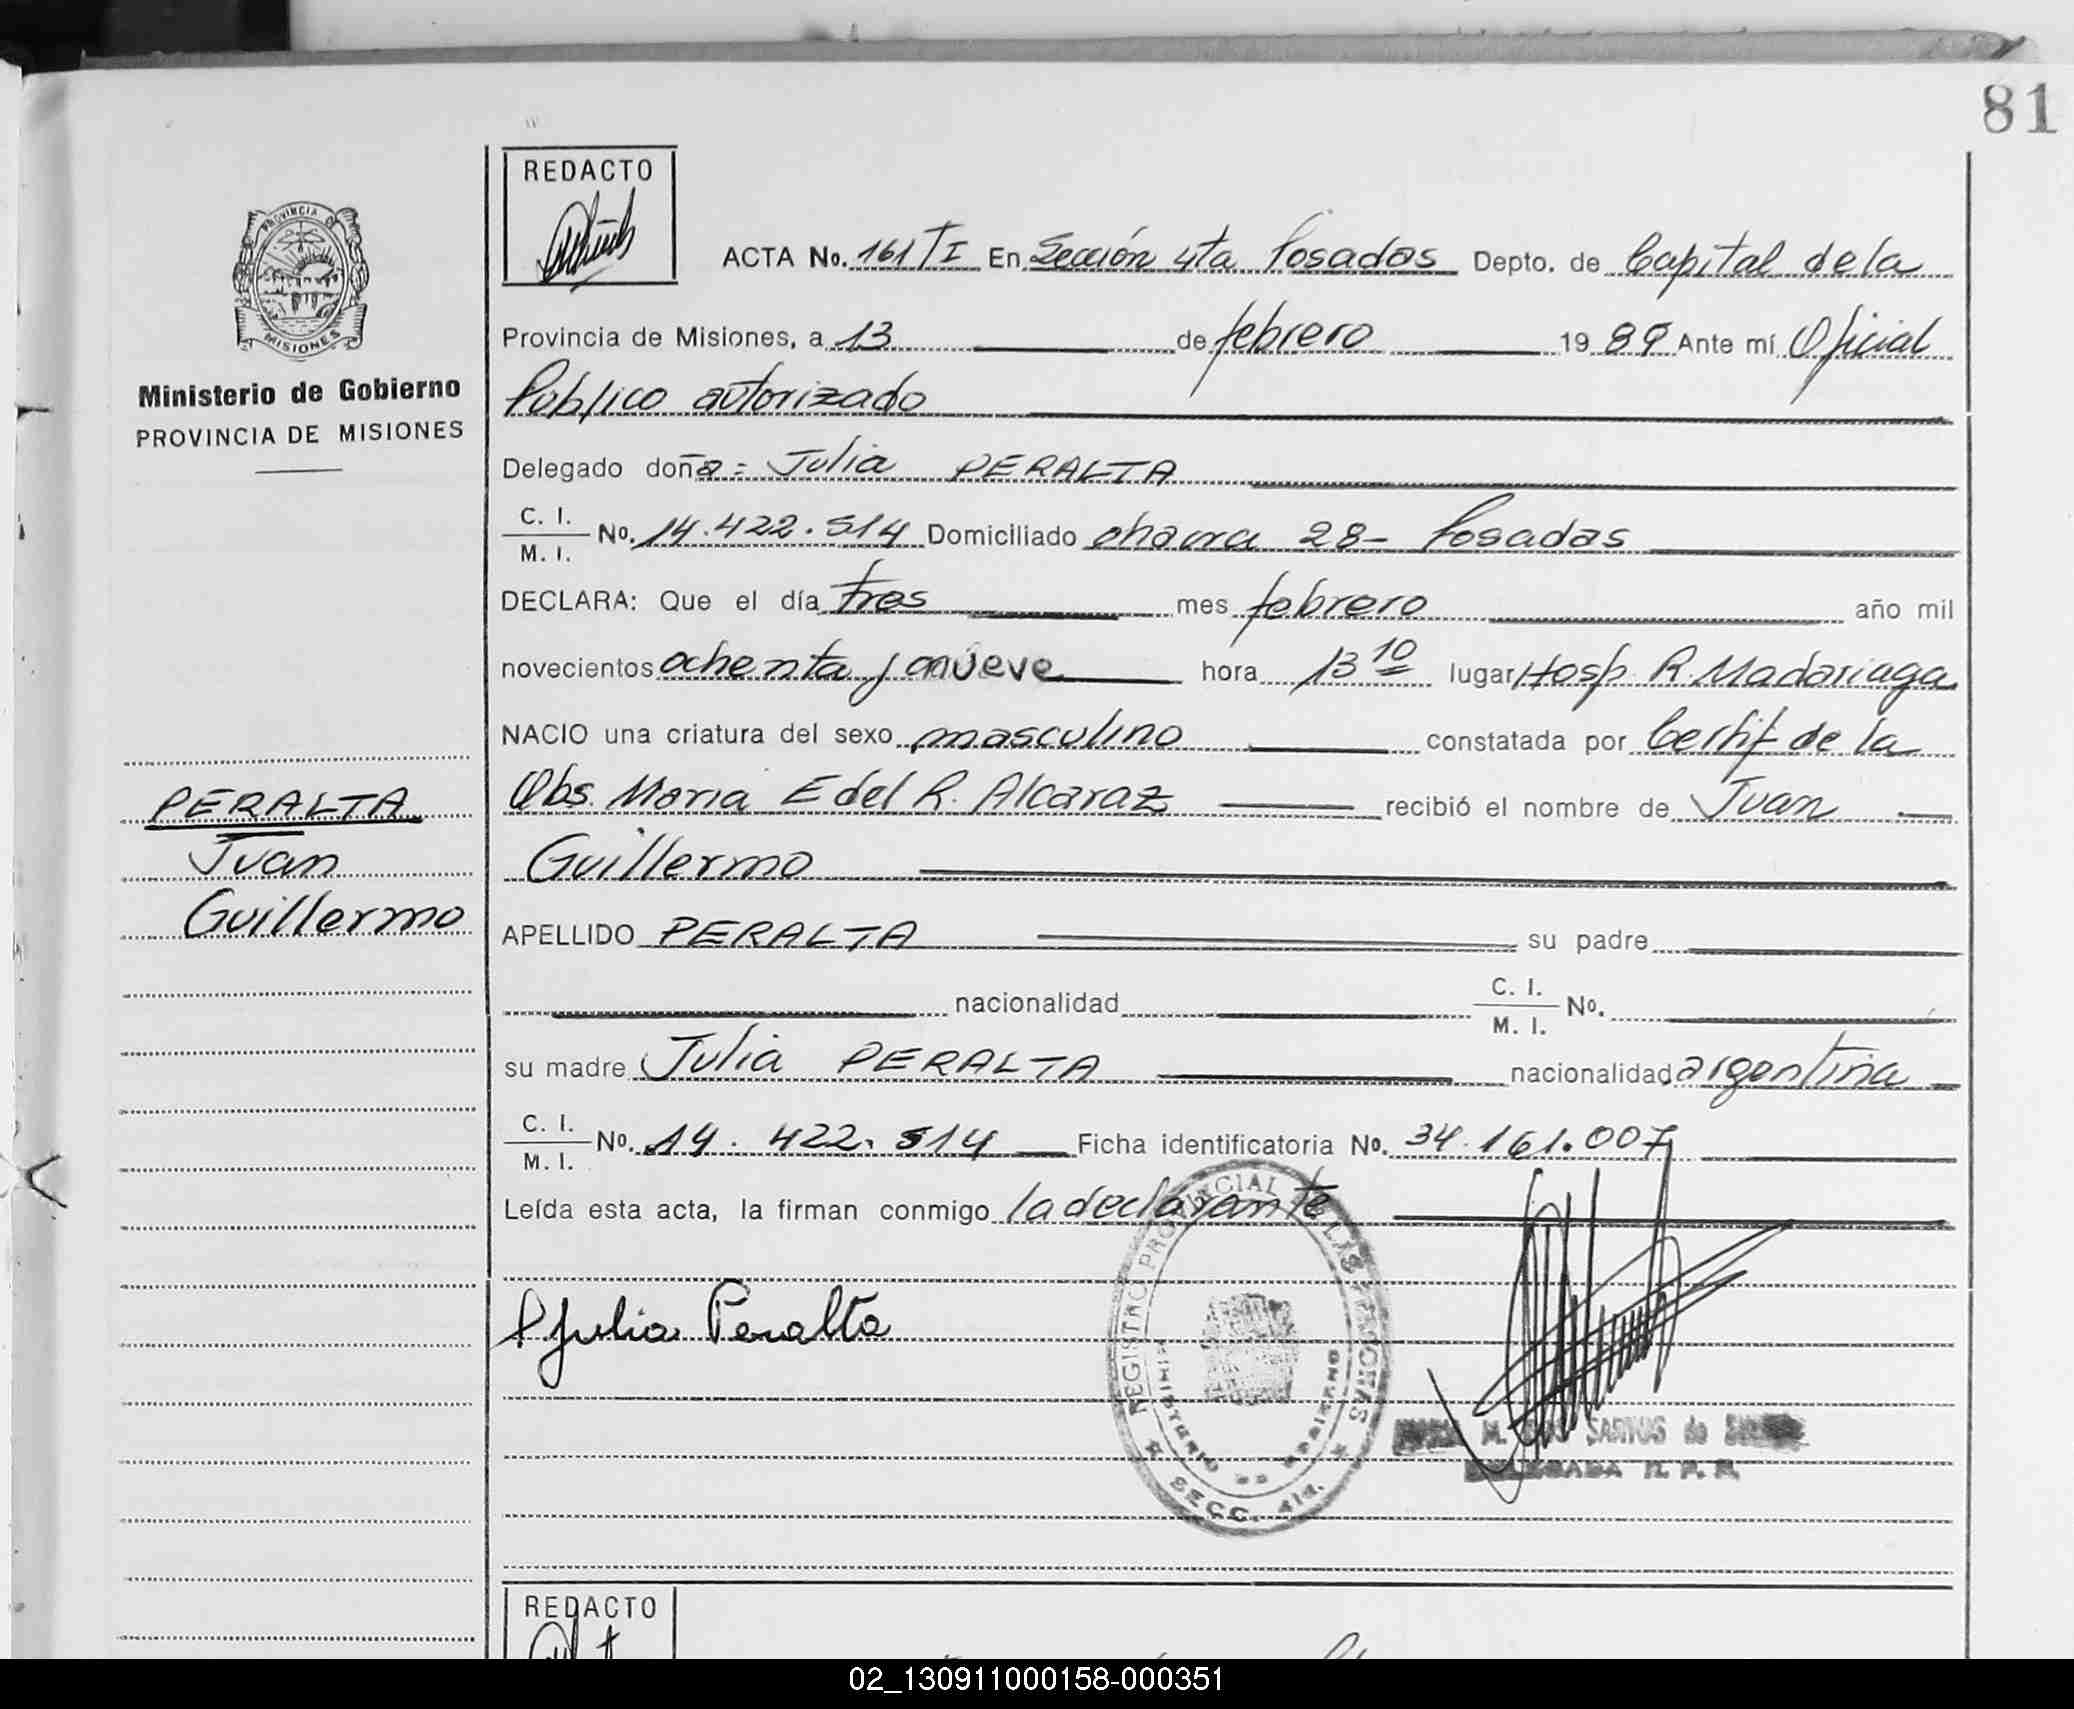 81
REDACTO
PROVINCIA DE
MISIONES
Ministerio de Gobierno
PROVINCIA DE MISIONES
ACTA No. 161 T I En Sección 4ta Posadas Depto. de Capital de la
Provincia de Misiones, a 13 de febrero 19 89 Ante mí Oficial
Público autorizado
Delegado doña: Julia PERALTA
C. I.
M. I. No. 14.422.514 Domiciliado chacra 28- Posadas
DECLARA: Que el día tres mes febrero año mil
novecientos ochenta y nueve hora 13 10 lugar Hosp. R. Madariaga
NACIO una criatura del sexo masculino constatada por Certif de la
Obs. Maria E del R. Alcaraz recibió el nombre de Juan
Guillermo
APELLIDO PERALTA su padre
nacionalidad C. I.
M. I. No.
su madre Julia PERALTA nacionalidad argentina
C. I.
M. I. No. 14. 422. 514 Ficha identificatoria No. 34.161.007
Leída esta acta, la firman conmigo la declarante
PERALTA
Juan
Guillermo
Julia Peralta
REGISTRO PROVINCIAL DE LAS PERSONAS
MINISTERIO DE GOBIERNO
SECC. 4ta.
M. SANTOS de
DELEGADA R. P. P.
REDACTO
02_130911000158-000351